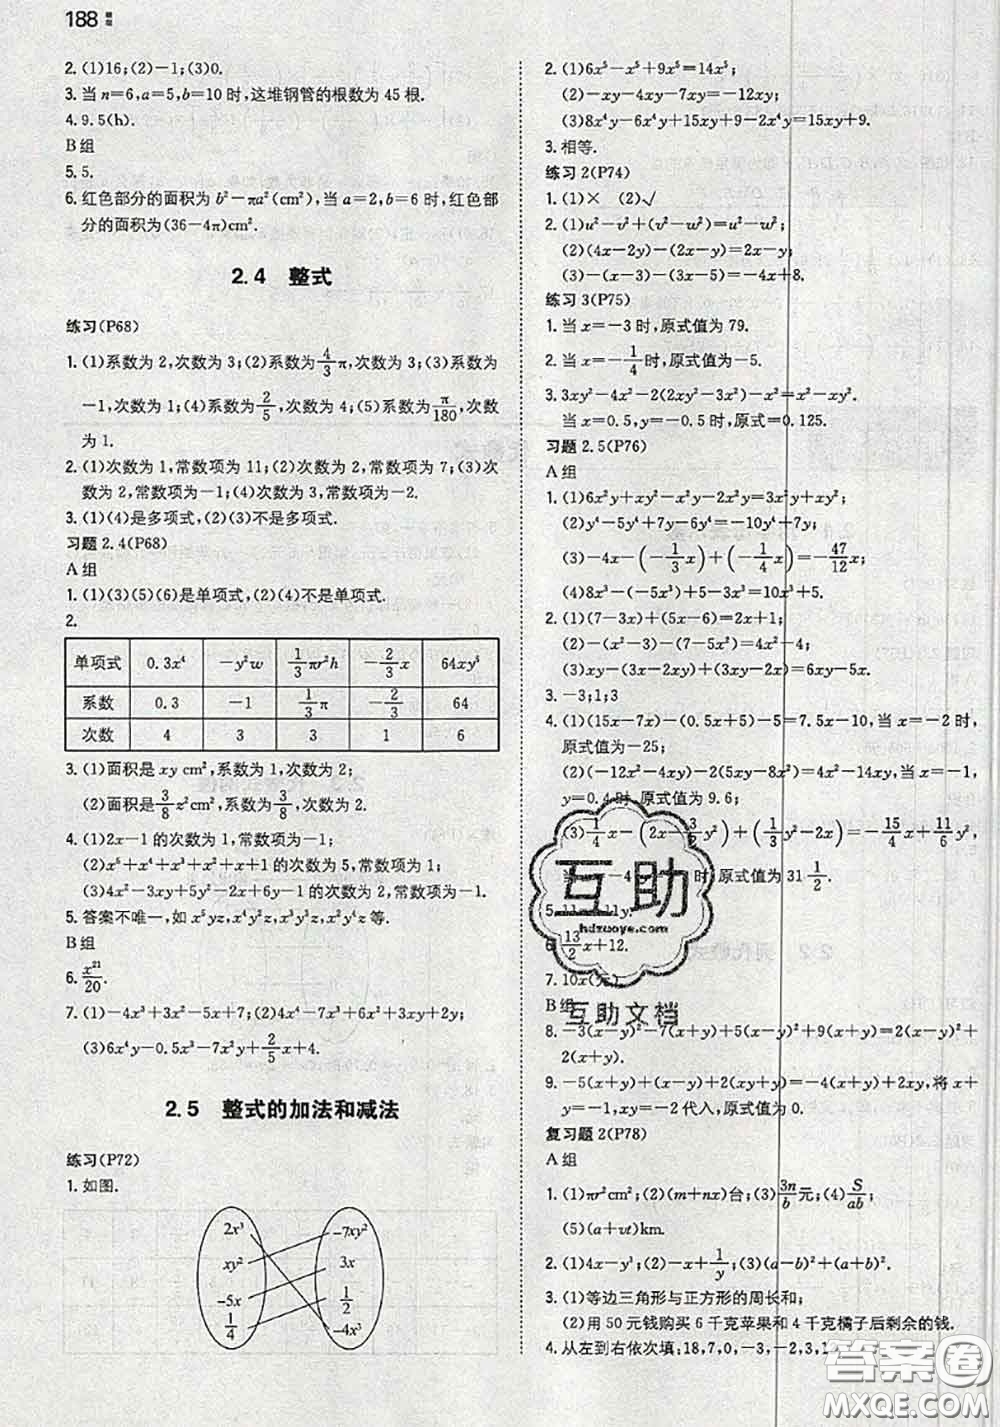 188
2.(1)16;(2)-1;(3)0.
3.当n=6,a=5,b=10时,这堆钢管的根数为45根.
4.9.5(h).
B组
5.5.
6.红色部分的面积为b²-πa²(cm²),当a=2,b=6时,红色部
分的面积为(36-4π)cm².
2.4 整式
练习(P68)
1.(1)系数为2,次数为3;(2)系数为4/3π,次数为3;(3)系数为
-1,次数为1;(4)系数为2/5,次数为4;(5)系数为π/180,次数
为1.
2.(1)次数为2,常数项为11;(2)次数为2,常数项为7;(3)次
数为2,常数项为-1;(4)次数为6,常数项为-2.
3.(1)(4)是多项式,(2)(3)不是多项式.
习题2.4(P68)
A组
1.(1)(3)(5)(6)是单项式,(2)(4)不是单项式.
2.
单项式 0.3x⁴ -y²w 1/3πr²h -2/3x 64xy⁵
系数 0.3 -1 1/3π -2/3 64
次数 4 3 3 1 6
3.(1)面积是xy cm²,系数为1,次数为2;
(2)面积为3/8z²cm²,系数为3/8,次数为2.
4.(1)2x-1的次数为1,常数项为-1;
(2)x⁵+x⁴+x³+x²+x+1的次数为5,常数项为1;
(3)4x²-3xy+5y²-2x+6y-1的次数为2,常数项为-1.
5.答案不唯一,如x⁵yz,x⁴y²z,x³y³z,x²y⁴z等.
B组
6.x²¹/20.
7.(1)-4x³+3x²-5x+7;(2)2x⁴-7x³-4x²+x-3;
(3)6x⁴y-0.5x³y²+2/5x+4.
2.5 整式的加法和减法
练习(P72)
1.如图.
2x³ -7xy²
xy² 3x
-5x 1/2
1/4 -4x³
2.(1)6x⁵-x⁵+9x⁵=14x⁵;
(2)-xy-4xy-7xy=-12xy;
(3)8x⁴y-6x⁴y+15xy+9-2x⁴y=15xy+9.
3.相等.
练习2(P74)
1.(1)× (2)√
2.(1)u²-v²+(v²-w²)=u²-w²;
(2)(4x-2y)-(2x-y)=2x-y;
(3)-(x-3)-(3x-5)=-4x+8.
练习3(P75)
1.当x=-3时,原式值为79.
2.当x=-1/4时,原式值为-5.
3.3xy²-4x²-2(2xy²-3x²)-x²=-xy²+x²
当x=0.5,y=-0.5时,原式=0.125.
习题2.5(P76)
A组
1.(1)6x²y+xy²-x²y-2x²y=3x²y+xy²;
(2)y⁴-5y⁴+7y+6y⁴-10y⁴=-8y⁴+7y;
(3)-4x-(-1/3x)+(-1/4x)=-47/12x;
(4)8x³-(-5x³)+5-3x³=10x³+5.
2.(1)(7-3x)+(5x-6)=2x+1;
(2)-(x²-3)-(7-5x²)=4x²-4;
(3)(xy-5x)-(-xy)-(3x-4xy)=6xy-8x.
3.-3;1;3
4.(1)(15x-7x)-(0.5x+5)-5=7.5x-10,当x=-2时,
原式值为-25;
y=0.4时,原式值为9.6;
5.11
6.13/2x+12.
7.10x(元).
B组
8.-3(x-y)²-7(x+y)+5(x-y)²+9(x+y)=2(x-y)²+
2(x+y).
x=-1,y=-2代入,原式值为0.
复习题2(P78)
A组
1.(1)πr²cm²;(2)(m+nx)台;(3)3n/b元;(4)S/ab;
(5)(a+vt)km.
2.(1)4x-y³;(2)-x+1/y;(3)(a-b)²+(a+b)².
3.(1)等边三角形与正方形的周长和;
(2)用50元钱购买6千克苹果和4千克橘子后剩余的钱.
4.从左到右依次填:18,7,0,-3,-2,3,1
互助
hdzuoye.com
互助文档
答案圈
MXQE.COM